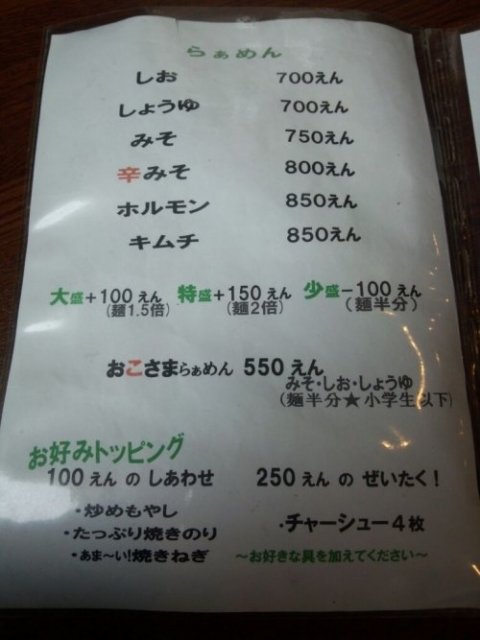 らぁめん
しお 700えん
しょうゆ 700えん
みそ 750えん
辛みそ 800えん
ホルモン 850えん
キムチ 850えん
大盛+100えん 特盛+150えん 少盛-100えん
(麺1.5倍) (麺2倍) (麺半分)
おこさまらぁめん 550えん
みそ・しお・しょうゆ
(麺半分★小学生以下)
お好みトッピング
100えんのしあわせ 250えんのぜいたく!
・炒めもやし ・チャーシュー4枚
・たっぷり焼きのり
・あま〜い!焼きねぎ 〜お好きな具を加えてください〜